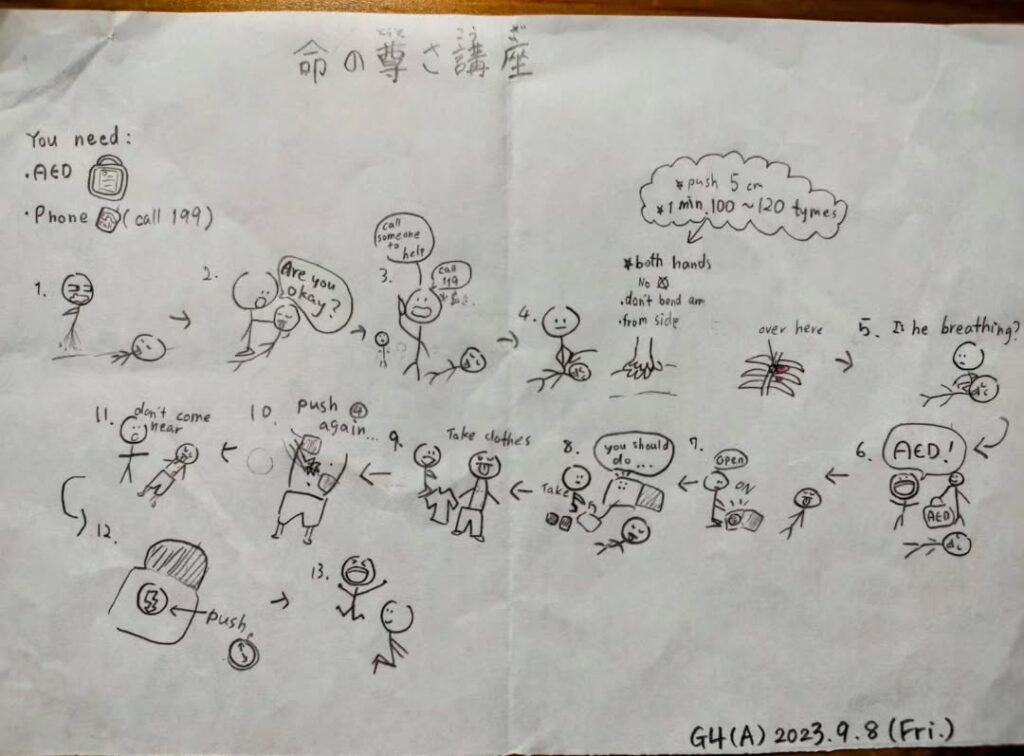 とうと こう ざ
命の尊さ講座
You need:
・AED
・Phone (call 199)
*push 5 cm
*1 min.100~120 tymes
*both hands
No
・don't bend am
・from side
over here
1.
2.
Are you
okay?
3.
call
someone
to
help
call
119
4.
5. Is he breathing?
6.
AED!
AED
7.
open
ON
8.
you should
do...
Take
9.
Take clothes
10.
push
again...
11.
don't come
near
12.
push
13.
G4(A) 2023.9.8 (Fri.)